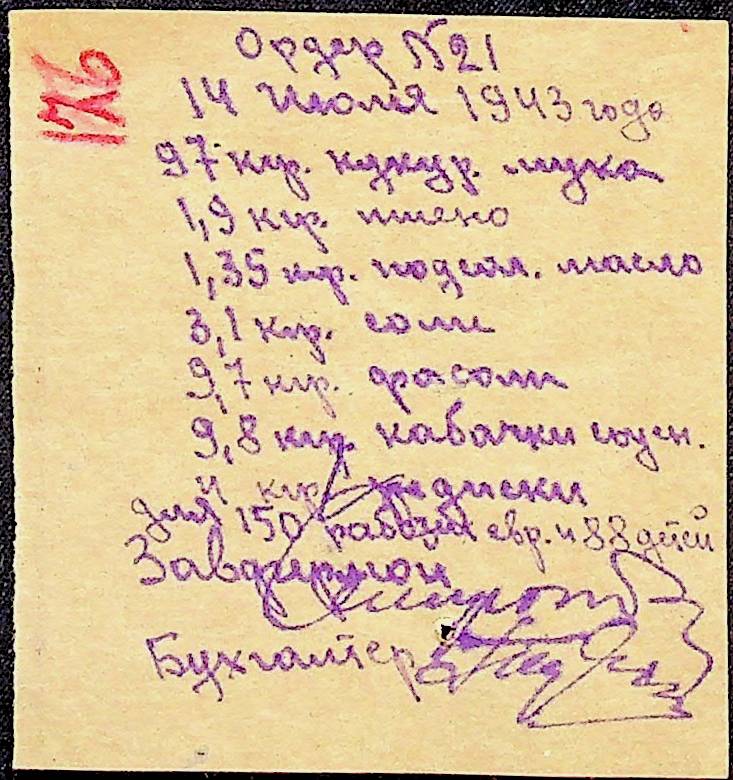 176
Ордер №21
14 Июля 1943 года
97 кгр. кукур. мука
1,9 кгр. пшено
1,35 кгр. подсол. масло
3,1 кгр. соли
9,7 кгр. фасоли
9,8 кгр. кабачки сушен.
4 кгр. редиски
для 150 рабочих евр. и 88 детей
Завфермой
Бухгалтер